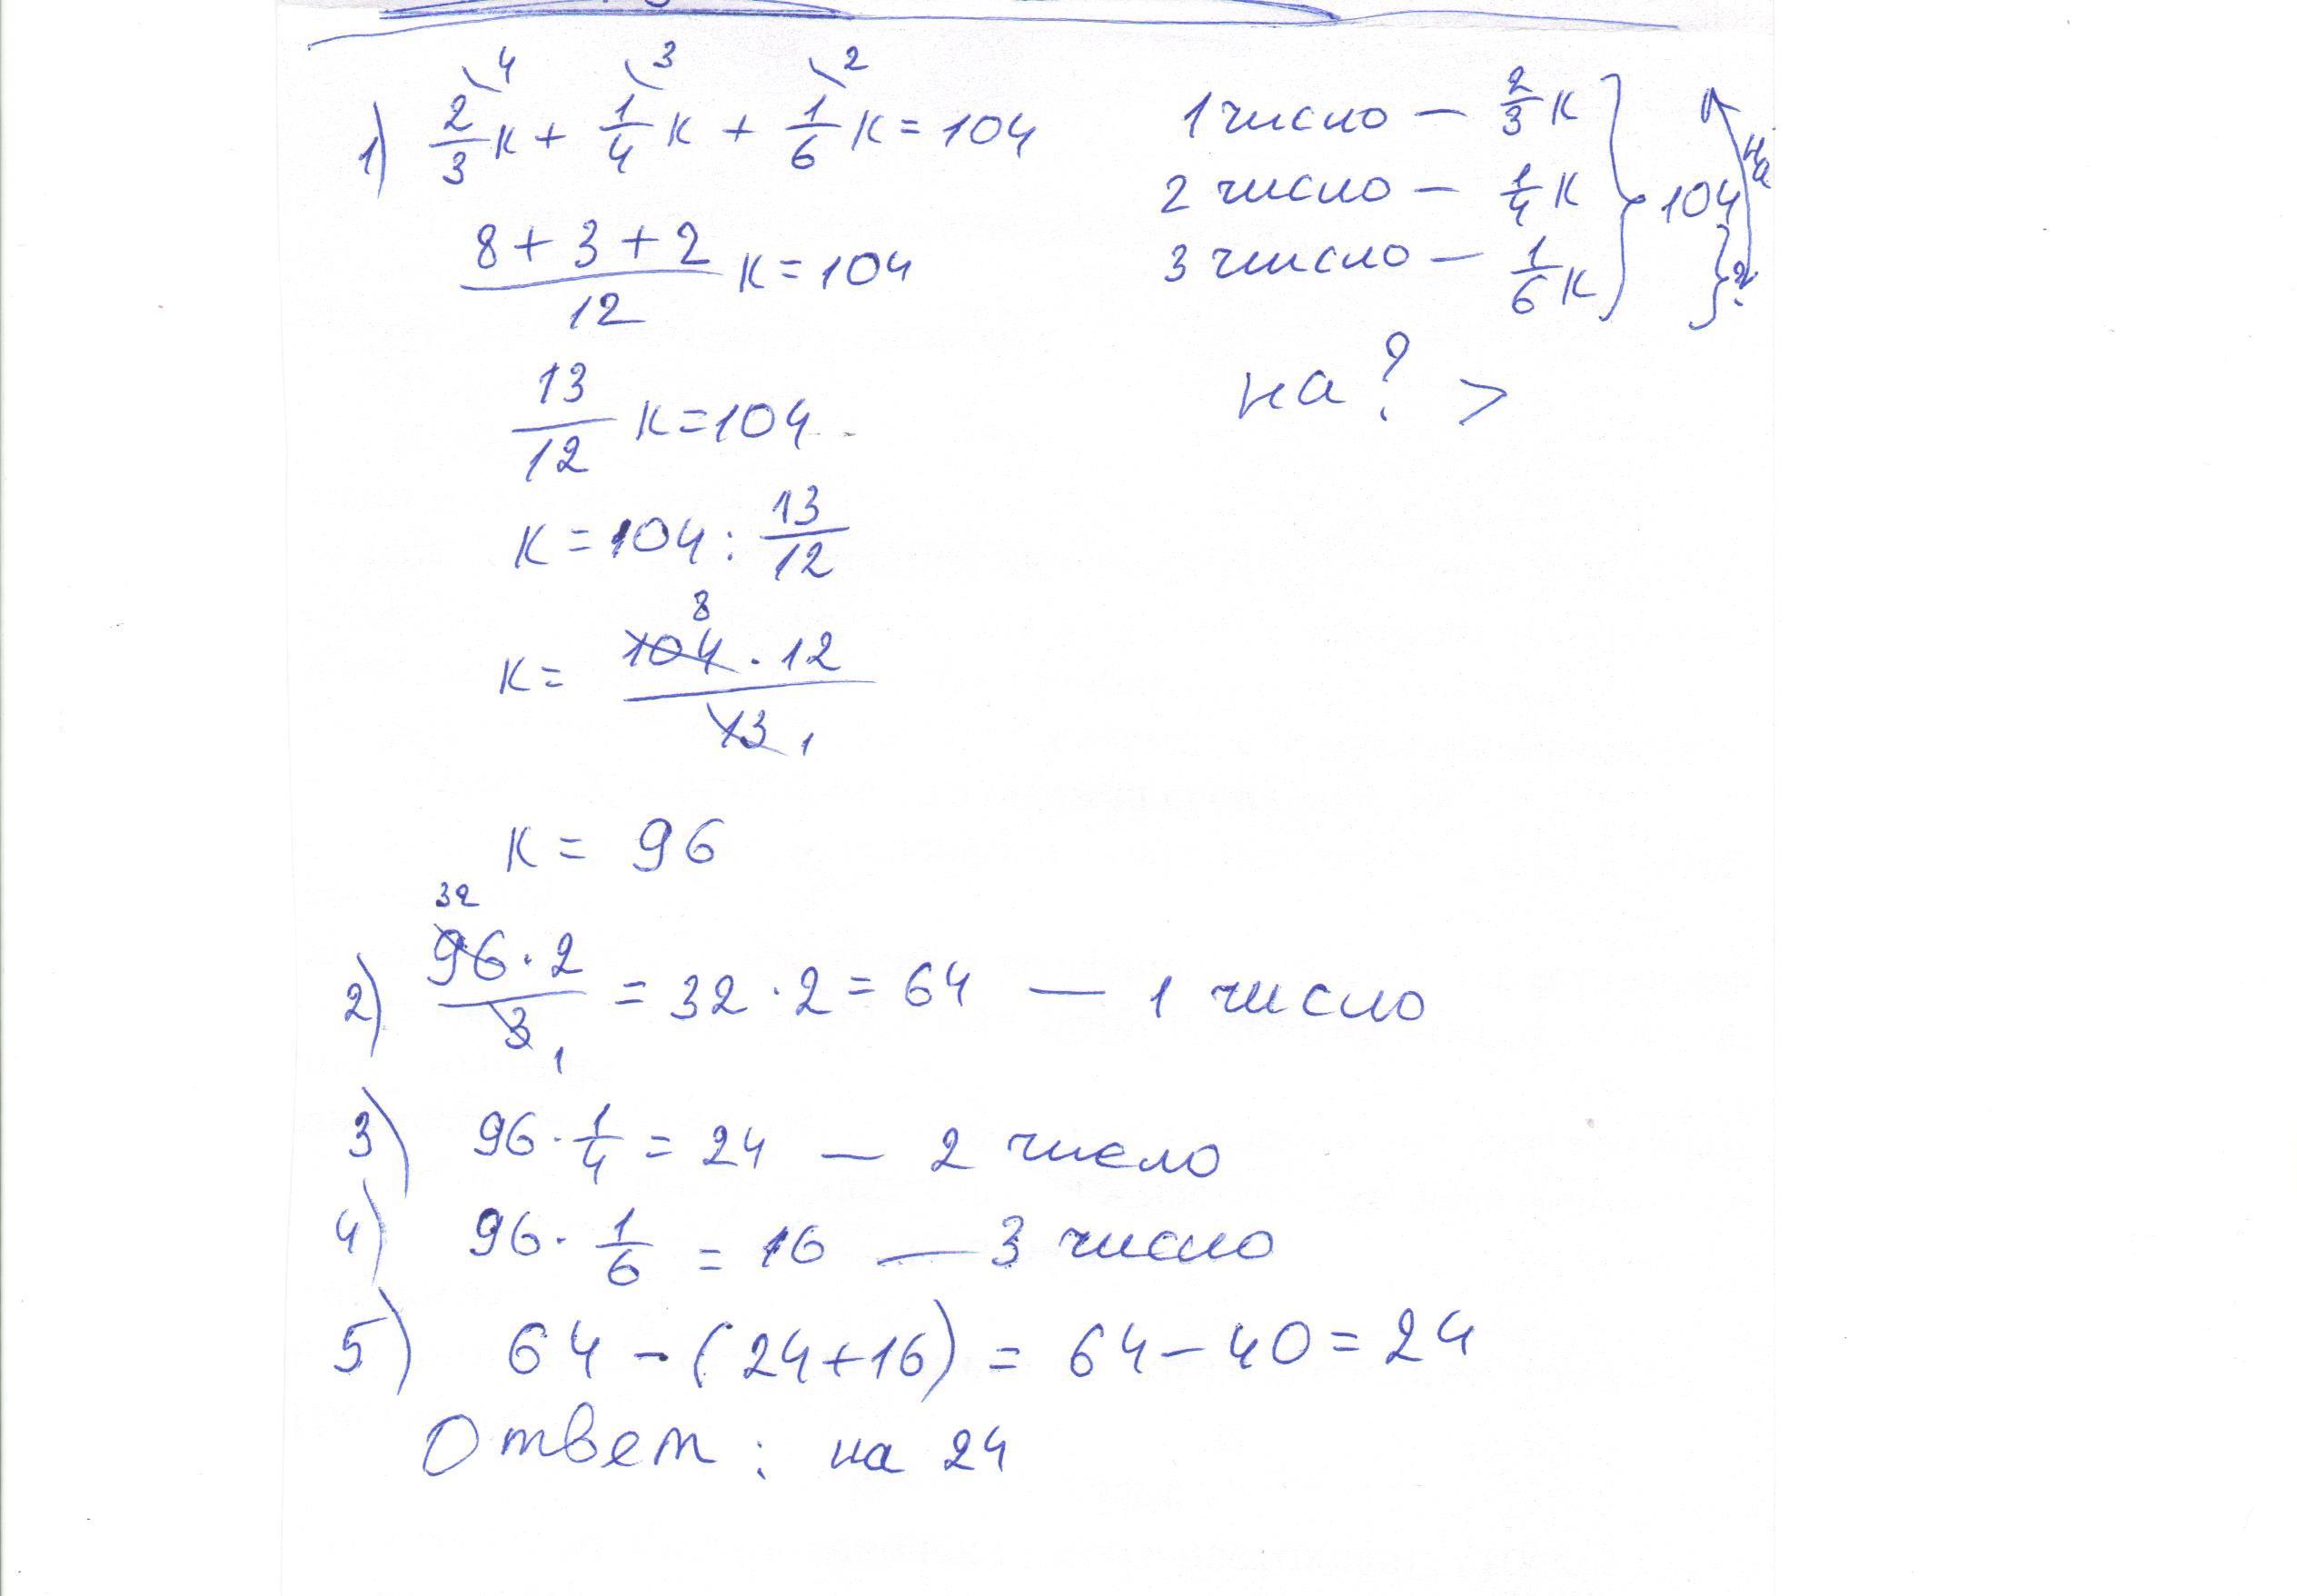 1) 2/3 к + 1/4 к + 1/6 к = 104
4 3 2
8 + 3 + 2 / 12 к = 104
13/12 к = 104
к = 104 : 13/12
к = 104 · 12 / 13
8 1
к = 96
1 число — 2/3 к
2 число — 1/4 к
3 число — 1/6 к
} 104
} ?
на
на ? >
2) 96 · 2 / 3 = 32 · 2 = 64 — 1 число
32 1
3) 96 · 1/4 = 24 — 2 число
4) 96 · 1/6 = 16 — 3 число
5) 64 - (24 + 16) = 64 - 40 = 24
Ответ : на 24